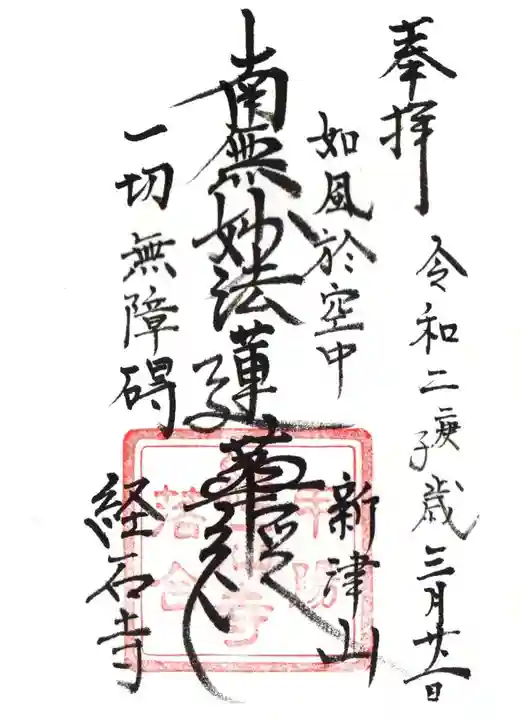 奉拝
令和二庚子歳三月廿一日
如風於空中
新津山
南無妙法蓮華経
一切無障碍
経石寺